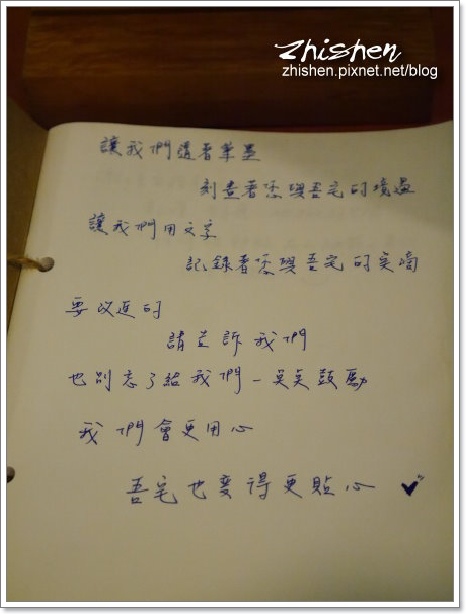 Zhishen
zhishen.pixnet.net/blog
讓我們隨著筆墨
刻畫著您與吾宅的境遇
讓我們用文字
記錄著您與吾宅的笑
要改進的
請告訴我們
也別忘了給我們一點點鼓勵
我們會更用心
吾宅也變得更貼心